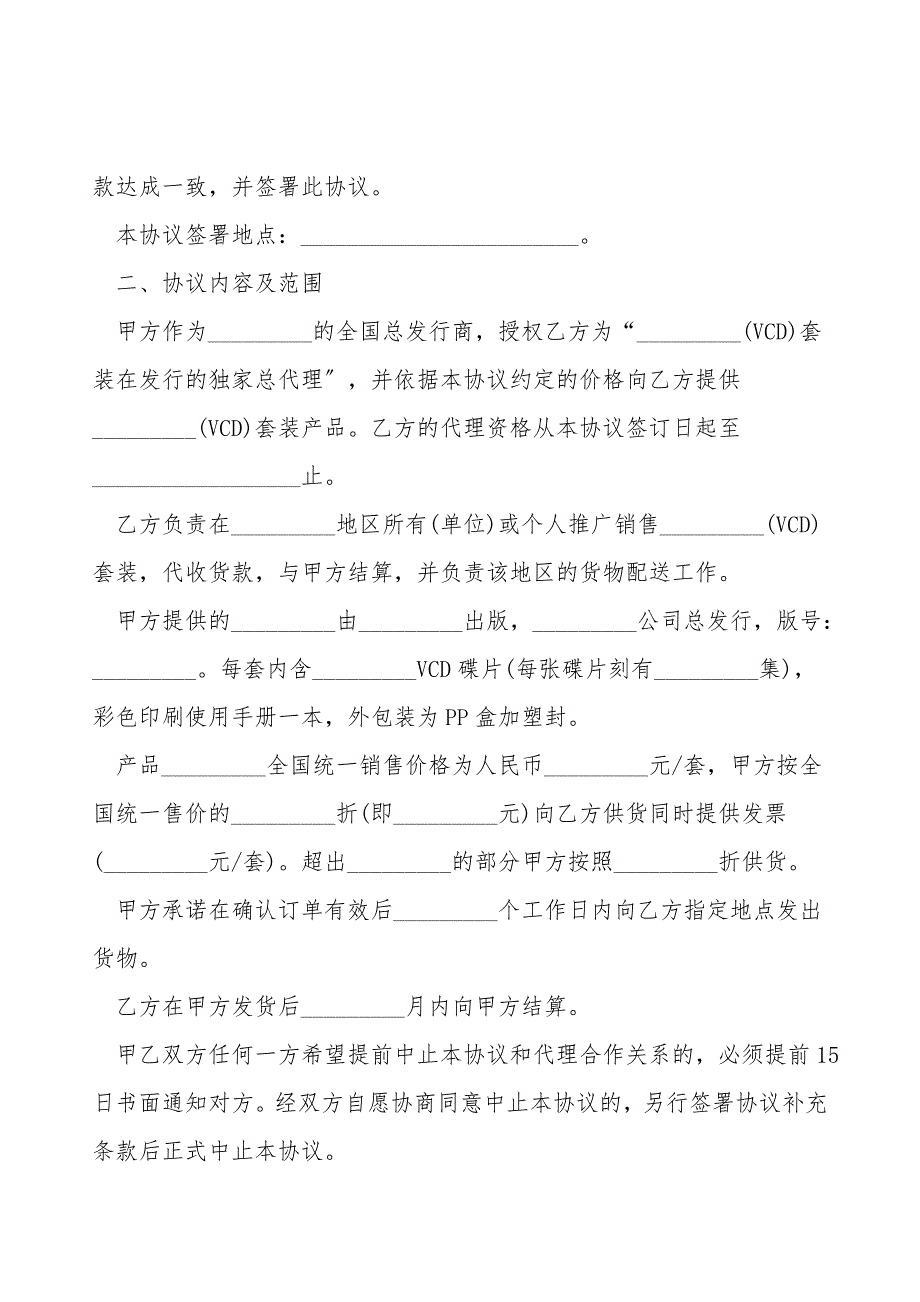 款达成一致，并签署此协议。
本协议签署地点：________________________。
二、协议内容及范围
甲方作为_________的全国总发行商，授权乙方为“_________(VCD)套
装在发行的独家总代理〞，并依据本协议约定的价格向乙方提供
_________(VCD)套装产品。乙方的代理资格从本协议签订日起至
__________________止。
乙方负责在_________地区所有(单位)或个人推广销售_________(VCD)
套装，代收货款，与甲方结算，并负责该地区的货物配送工作。
甲方提供的_________由_________出版，_________公司总发行，版号：
_________。每套内含_________VCD碟片(每张碟片刻有_________集)，
彩色印刷使用手册一本，外包装为PP盒加塑封。
产品_________全国统一销售价格为人民币_________元/套，甲方按全
国统一售价的_________折(即_________元)向乙方供货同时提供发票
(_________元/套)。超出_________的部分甲方按照_________折供货。
甲方承诺在确认订单有效后_________个工作日内向乙方指定地点发出
货物。
乙方在甲方发货后_________月内向甲方结算。
甲乙双方任何一方希望提前中止本协议和代理合作关系的，必须提前15
日书面通知对方。经双方自愿协商同意中止本协议的，另行签署协议补充
条款后正式中止本协议。